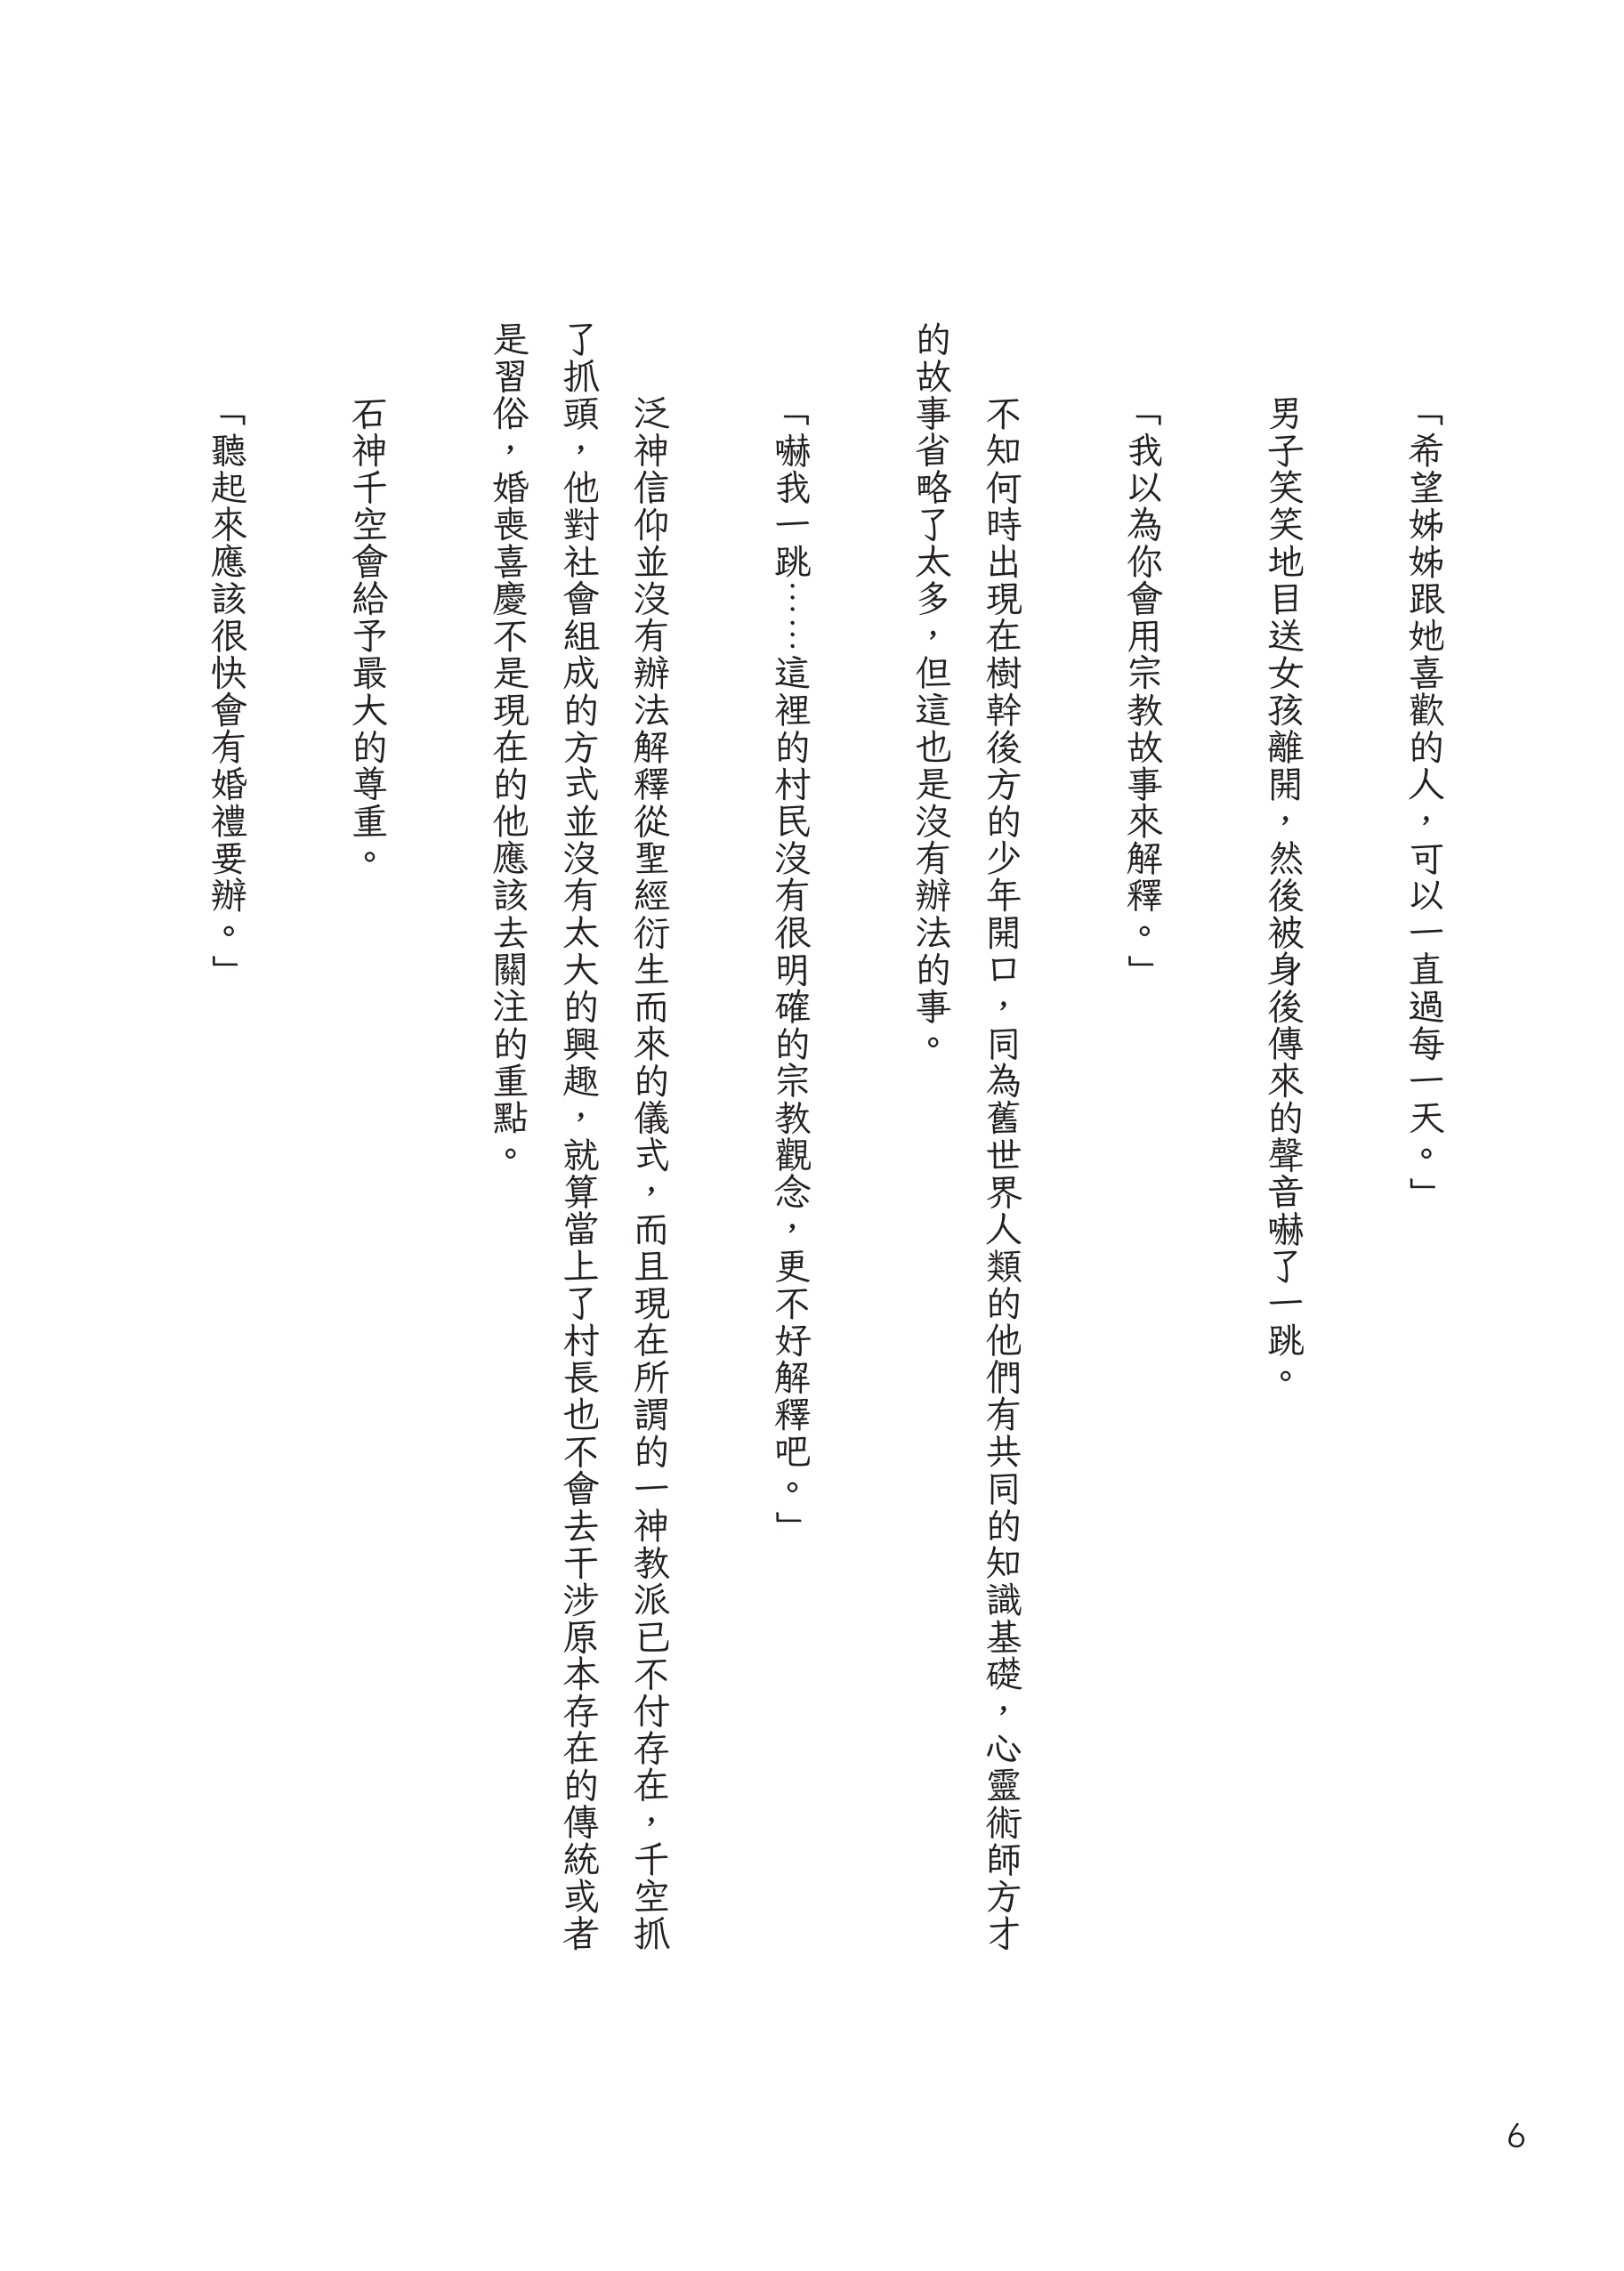 「希望姊姊跟她喜歡的人，可以一直過每一天。」
男子笑笑地目送女孩離開，然後被身後傳來的聲音嚇了一跳。
「我以為你會用宗教故事來解釋。」
不知何時出現在樹幹後方的少年開口，同為舊世界人類的他們有共同的知識基礎，心靈術師方才
的故事省略了太多，但這也是沒有辦法的事。
「嚇我一跳……這裡的村民沒有很明確的宗教觀念，更不好解釋吧。」
泛神信仰並沒有辦法解釋從聖經衍生而來的儀式，而且現在所謂的一神教派已不付存在，千空抓
了抓頭，他對社會組成的方式並沒有太大的興趣，就算當上了村長也不會去干涉原本存在的傳統或者
是習俗，婚喪喜慶不是現在的他應該去關注的重點。
石神千空會給予最大的尊重。
「聽起來應該很快會有婚禮要辦。」
6